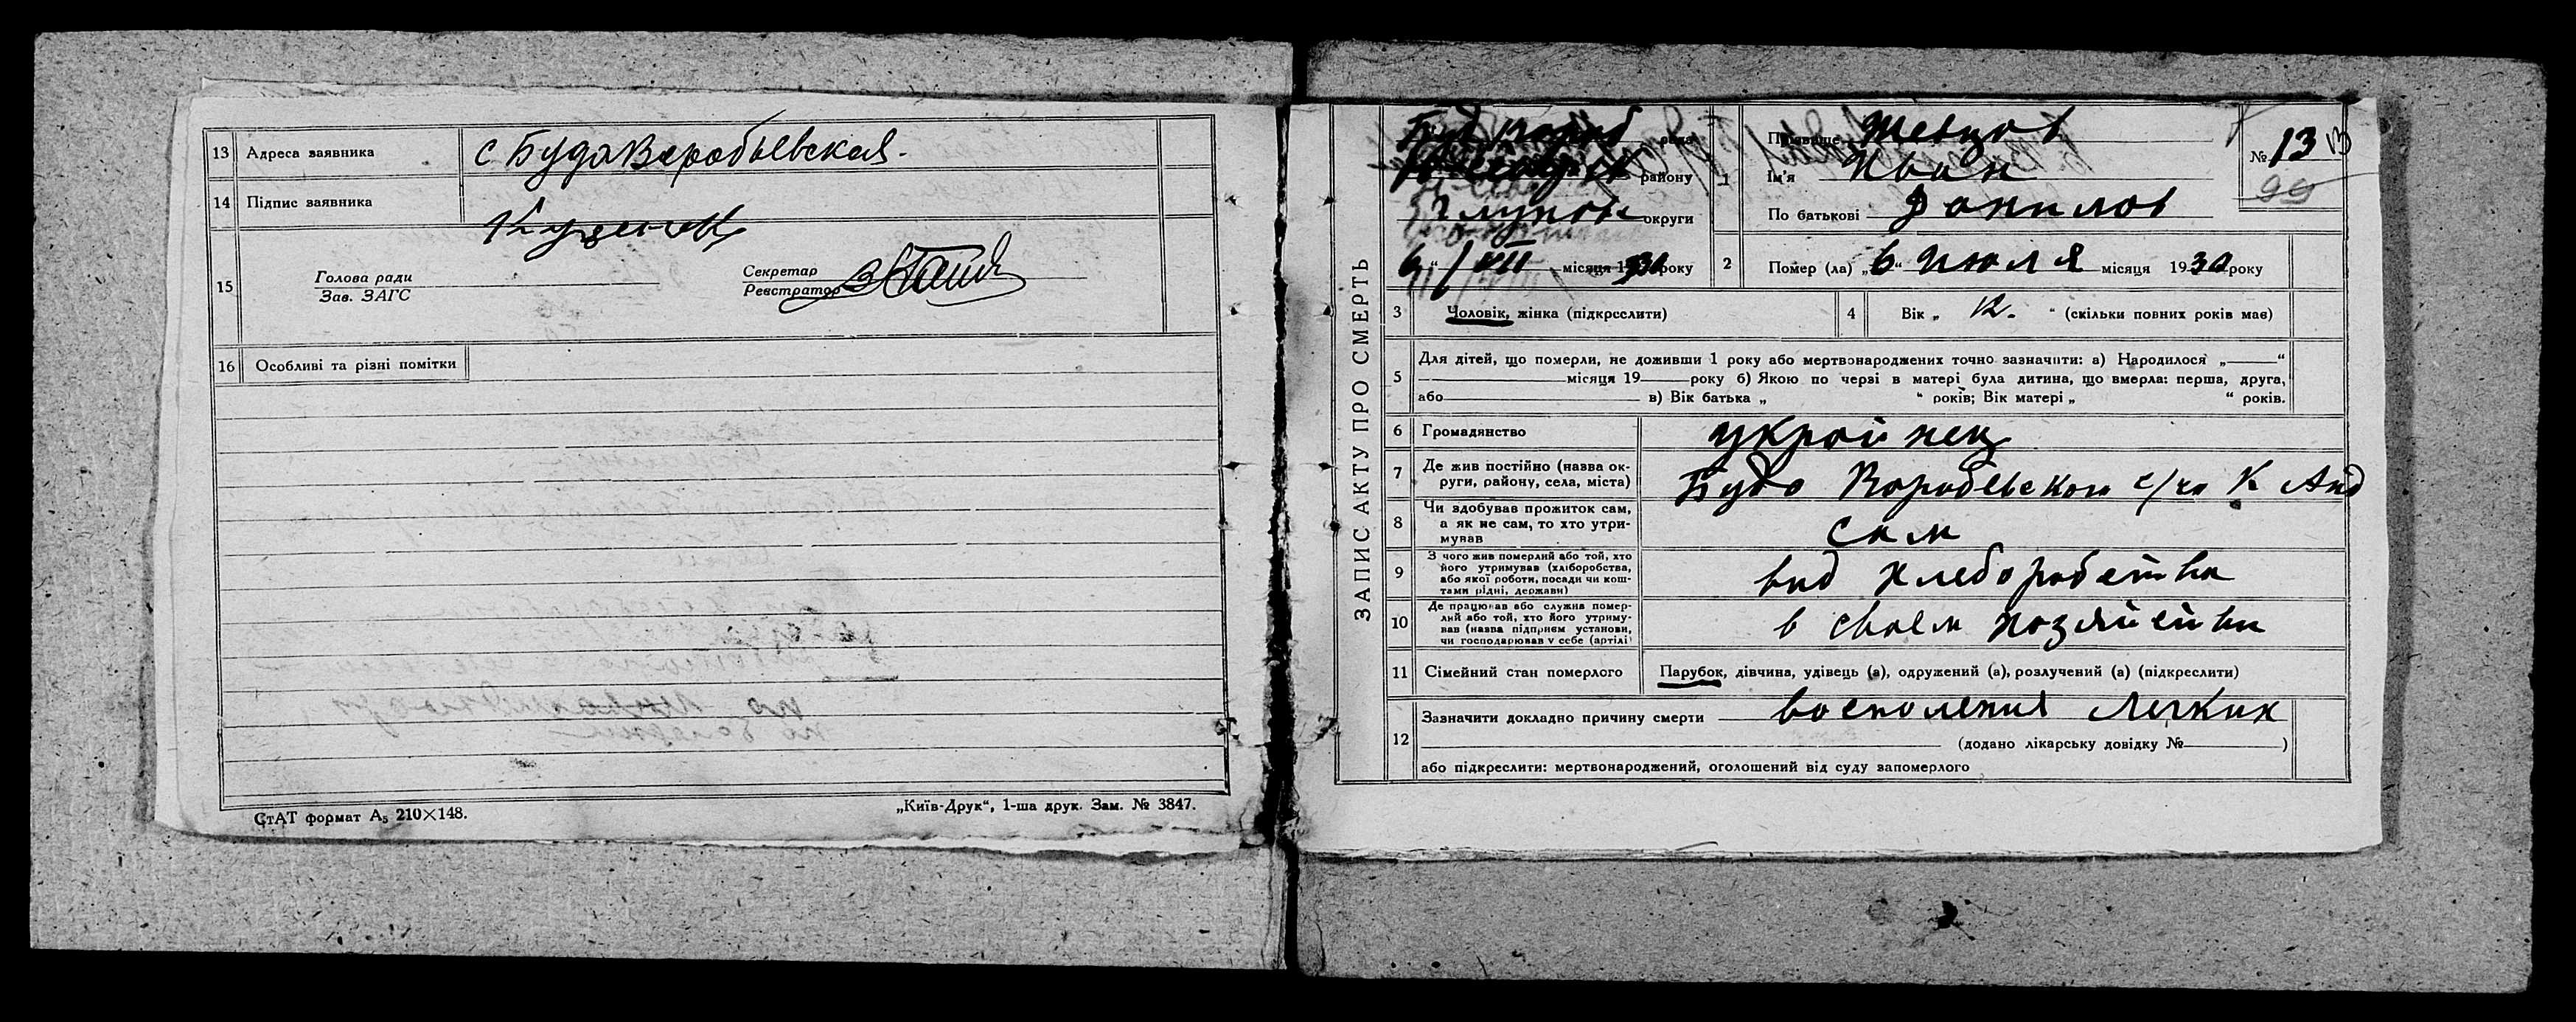 13 Адреса заявника с Буда Воробьевская.
14 Підпис заявника
15 Голова ради
Зав. ЗАГС
Секретар
Реєстратор
16 Особливі та різні помітки
СтАТ формат А5 210×148.
„Київ-Друк“, 1-ша друк. Зам. № 3847.
ЗАПИС АКТУ ПРО СМЕРТЬ
Буд Вороб рада
району
Глухов округи
6 “ / VII місяця 1930 року
1 Прізвище Шевцов
Ім'я Иван
По батькові Данилов
№ 13 13
99
2 Помер (ла) „6“ Июля місяця 1930 року
3 Чоловік, жінка (підкреслити)
4 Вік „ 12. “ (скільки повних років мав)
5 Для дітей, що померли, не доживши 1 року або мертвонароджених точно зазначити: а) Народилося „ “
місяця 19 року б) Якою по черзі в матері була дитина, що вмерла: перша, друга,
або в) Вік батька „ “ років; Вік матері „ “ років.
6 Громадянство украйнец
7 Де жив постійно (назва ок-
руги, району, села, міста) Буда Воробьевскои с/

8 Чи здобував прожиток сам,
а як не сам, то хто утри-
мував сам
9 З чого жив померлий або той, хто
його утримував (хліборобства,
або якої роботи, посади чи кош-
тами рідні, держави) вид хлеборобства
10 Де працював або служив помер-
лий або той, хто його утриму-
вав (назва підприєм установи,
чи господарював у себе (артілі) в своем хозяйстви
11 Сімейний стан померлого Парубок, дівчина, удівець (а), одружений (а), розлучений (а) (підкреслити)
12 Зазначити докладно причину смерти воспаления Легких
(додано лікарську довідку № )
або підкреслити: мертвонароджений, оголошений від суду запомерлого